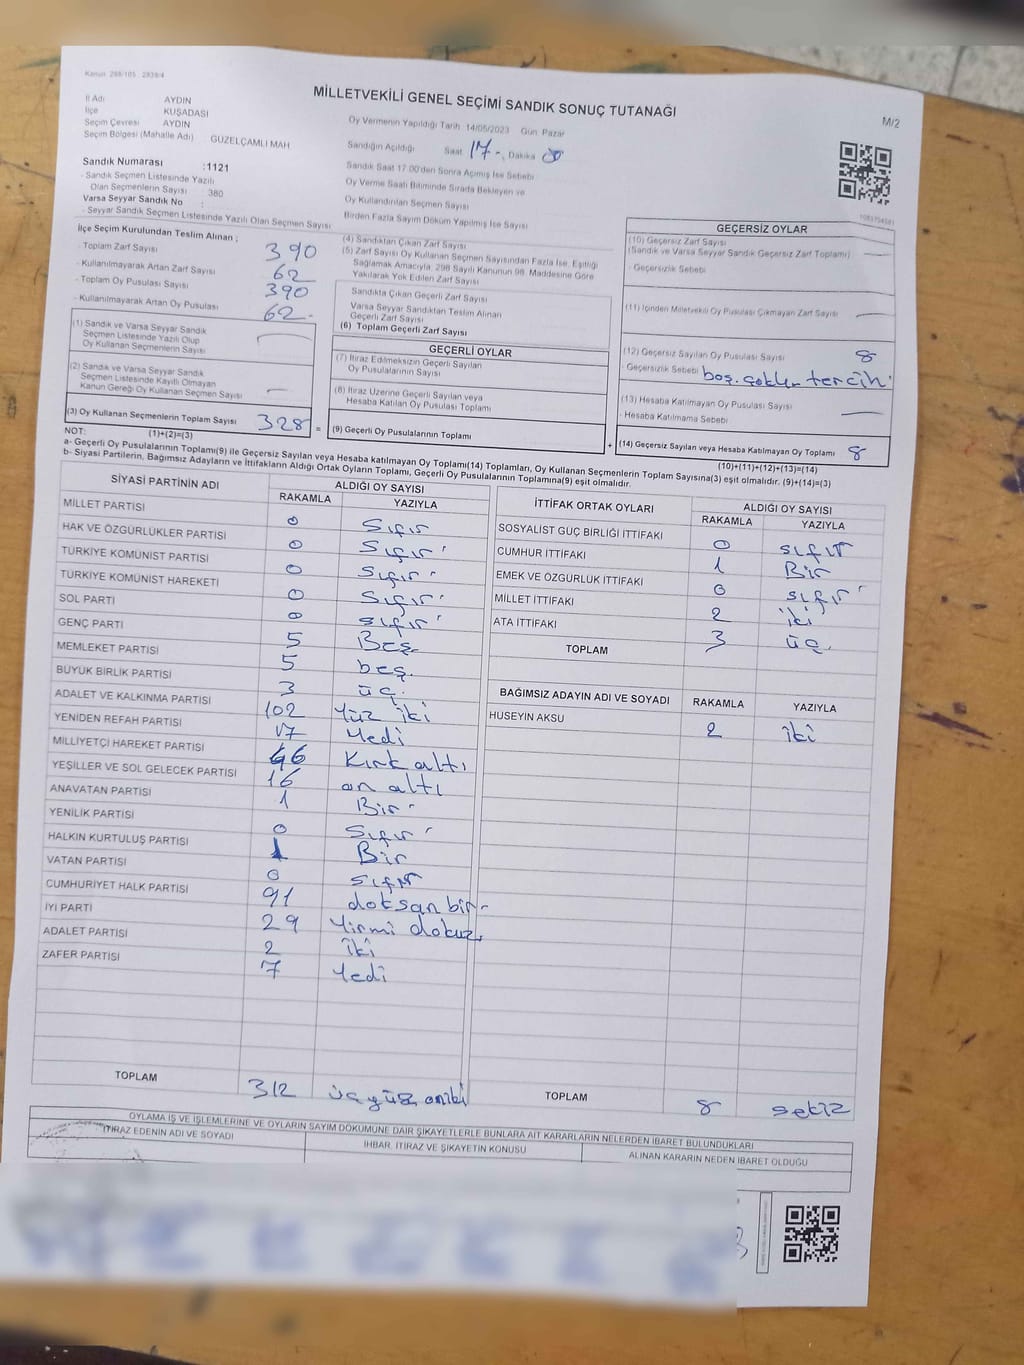 Kanun 298/105 , 2839/4
MİLLETVEKİLİ GENEL SEÇİMİ SANDIK SONUÇ TUTANAĞI
M/2
İl Adı AYDIN
İlçe KUŞADASI
Seçim Çevresi AYDIN
Seçim Bölgesi (Mahalle Adı) GÜZELÇAMLI MAH
Sandık Numarası :1121
- Sandık Seçmen Listesinde Yazılı
Olan Seçmenlerin Sayısı : 380
Varsa Seyyar Sandık No :
- Seyyar Sandık Seçmen Listesinde Yazılı Olan Seçmen Sayısı
Oy Vermenin Yapıldığı Tarih 14/05/2023 Gün Pazar
Sandığın Açıldığı Saat 17-, Dakika
Sandık Saat 17.00'den Sonra Açılmış İse Sebebi
Oy Verme Saati Bitiminde Sırada Bekleyen ve
Oy Kullandırılan Seçmen Sayısı
Birden Fazla Sayım Döküm Yapılmış İse Sayısı
İlçe Seçim Kurulundan Teslim Alınan ;
- Toplam Zarf Sayısı 390
- Kullanılmayarak Artan Zarf Sayısı 62
- Toplam Oy Pusulası Sayısı 390
- Kullanılmayarak Artan Oy Pusulası 62-
(1) Sandık ve Varsa Seyyar Sandık
Seçmen Listesinde Yazılı Olup
Oy Kullanan Seçmenlerin Sayısı
(2) Sandık ve Varsa Seyyar Sandık
Seçmen Listesinde Kayıtlı Olmayan
Kanun Gereği Oy Kullanan Seçmen Sayısı
(3) Oy Kullanan Seçmenlerin Toplam Sayısı 328 =
(1)+(2)=(3)
(4) Sandıktan Çıkan Zarf Sayısı
(5) Zarf Sayısı Oy Kullanan Seçmen Sayısından Fazla İse, Eşitliği
Sağlamak Amacıyla, 298 Sayılı Kanunun 98. Maddesine Göre
Yakılarak Yok Edilen Zarf Sayısı
Sandıkta Çıkan Geçerli Zarf Sayısı
Varsa Seyyar Sandıktan Teslim Alınan
Geçerli Zarf Sayısı
(6) Toplam Geçerli Zarf Sayısı
GEÇERLİ OYLAR
(7) İtiraz Edilmeksizin Geçerli Sayılan
Oy Pusulalarının Sayısı
(8) İtiraz Üzerine Geçerli Sayılan veya
Hesaba Katılan Oy Pusulası Toplamı
(9) Geçerli Oy Pusulalarının Toplamı +
GEÇERSİZ OYLAR
(10) Geçersiz Zarf Sayısı
(Sandık ve Varsa Seyyar Sandık Geçersiz Zarf Toplamı)
- Geçersizlik Sebebi
(11) İçinden Milletvekili Oy Pusulası Çıkmayan Zarf Sayısı
(12) Geçersiz Sayılan Oy Pusulası Sayısı 8
- Geçersizlik Sebebi boş. çoklu tercih
(13) Hesaba Katılmayan Oy Pusulası Sayısı
- Hesaba Katılmama Sebebi
(14) Geçersiz Sayılan veya Hesaba Katılmayan Oy Toplamı 8
(10)+(11)+(12)+(13)=(14)
NOT:
a- Geçerli Oy Pusulalarının Toplamı(9) ile Geçersiz Sayılan veya Hesaba katılmayan Oy Toplamı(14) Toplamları, Oy Kullanan Seçmenlerin Toplam Sayısına(3) eşit olmalıdır. (9)+(14)=(3)
b- Siyasi Partilerin, Bağımsız Adayların ve İttifakların Aldığı Ortak Oyların Toplamı, Geçerli Oy Pusulalarının Toplamına(9) eşit olmalıdır.
SİYASİ PARTİNİN ADI ALDIĞI OY SAYISI
RAKAMLA YAZIYLA
MİLLET PARTİSİ 0 Sıfır
HAK VE ÖZGÜRLÜKLER PARTİSİ 0 Sıfır
TÜRKİYE KOMÜNİST PARTİSİ 0 Sıfır
TÜRKİYE KOMÜNİST HAREKETİ 0 Sıfır
SOL PARTİ 0 sıfır
GENÇ PARTİ 5 Beş
MEMLEKET PARTİSİ 5 beş.
BÜYÜK BİRLİK PARTİSİ 3 üç.
ADALET VE KALKINMA PARTİSİ 102 Yüz iki
YENİDEN REFAH PARTİSİ 7 Yedi
MİLLİYETÇİ HAREKET PARTİSİ 46 Kırk altı
YEŞİLLER VE SOL GELECEK PARTİSİ 16 on altı
ANAVATAN PARTİSİ 1 Bir
YENİLİK PARTİSİ 0 Sıfır
HALKIN KURTULUŞ PARTİSİ 1 Bir
VATAN PARTİSİ 0 sıfır
CUMHURİYET HALK PARTİSİ 91 doksan bir-
İYİ PARTİ 29 Yirmi dokuz
ADALET PARTİSİ 2 iki
ZAFER PARTİSİ 7 Yedi
TOPLAM 312 üçyüz oniki
İTTİFAK ORTAK OYLARI ALDIĞI OY SAYISI
RAKAMLA YAZIYLA
SOSYALİST GÜÇ BİRLİĞİ İTTİFAKI 0 sıfır
CUMHUR İTTİFAKI 1 Bir
EMEK VE ÖZGÜRLÜK İTTİFAKI 0 sıfır
MİLLET İTTİFAKI 2 iki
ATA İTTİFAKI 3 üç.
TOPLAM
BAĞIMSIZ ADAYIN ADI VE SOYADI RAKAMLA YAZIYLA
HÜSEYİN AKSU 2 iki
TOPLAM 8 sekiz
OYLAMA İŞ VE İŞLEMLERİNE VE OYLARIN SAYIM DÖKÜMÜNE DAİR ŞİKAYETLERLE BUNLARA AİT KARARLARIN NELERDEN İBARET BULUNDUKLARI
İTİRAZ EDENİN ADI VE SOYADI İHBAR, İTİRAZ VE ŞİKAYETİN KONUSU ALINAN KARARIN NEDEN İBARET OLDUĞU